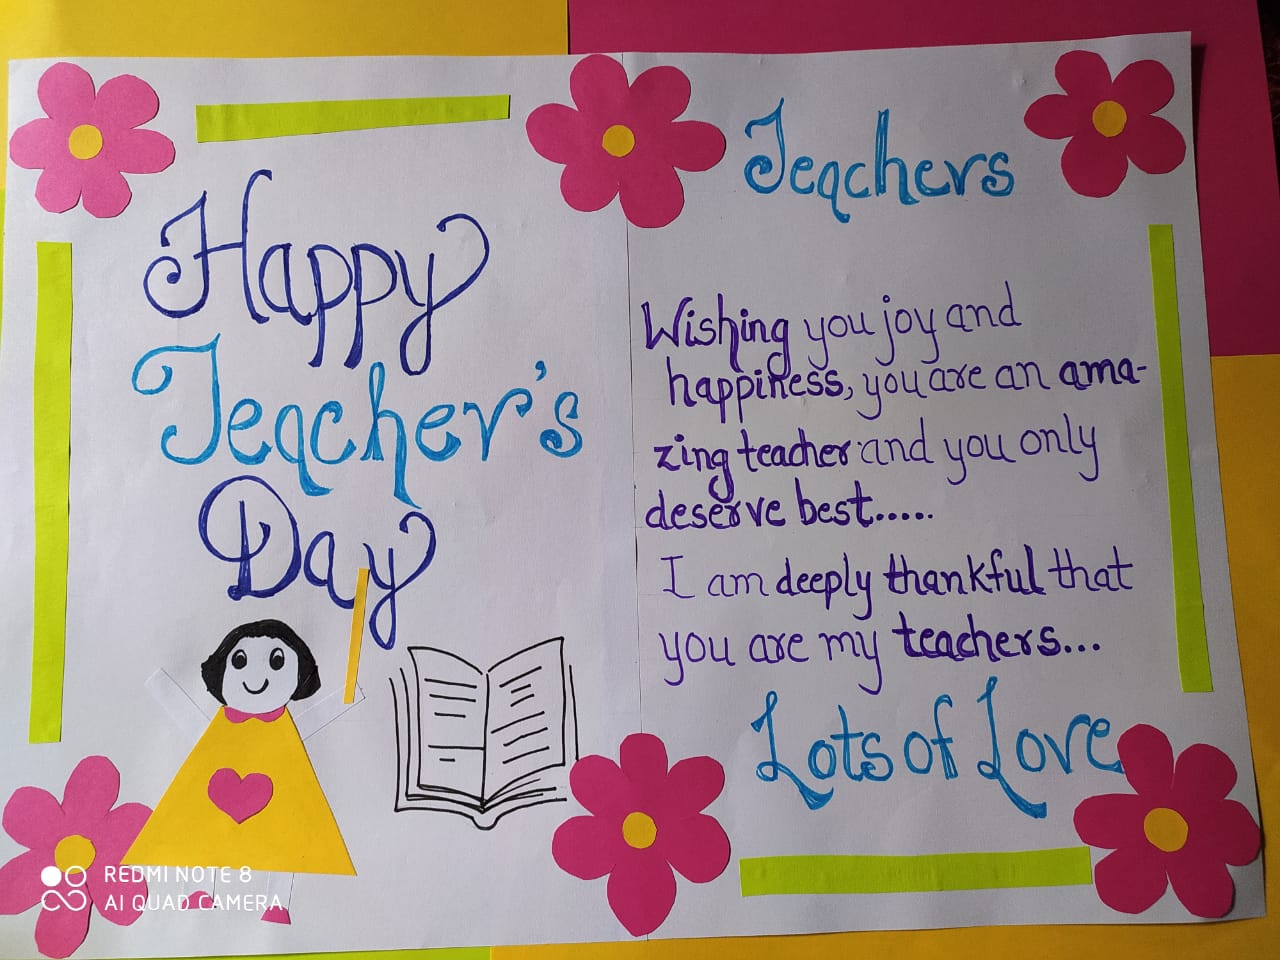 Happy
Teacher's
Day
Teachers
Wishing you joy and
happiness, you are an ama-
zing teacher and you only
deserve best.....
I am deeply thankful that
you are my teachers...
Lots of Love
REDMI NOTE 8
AI QUAD CAMERA